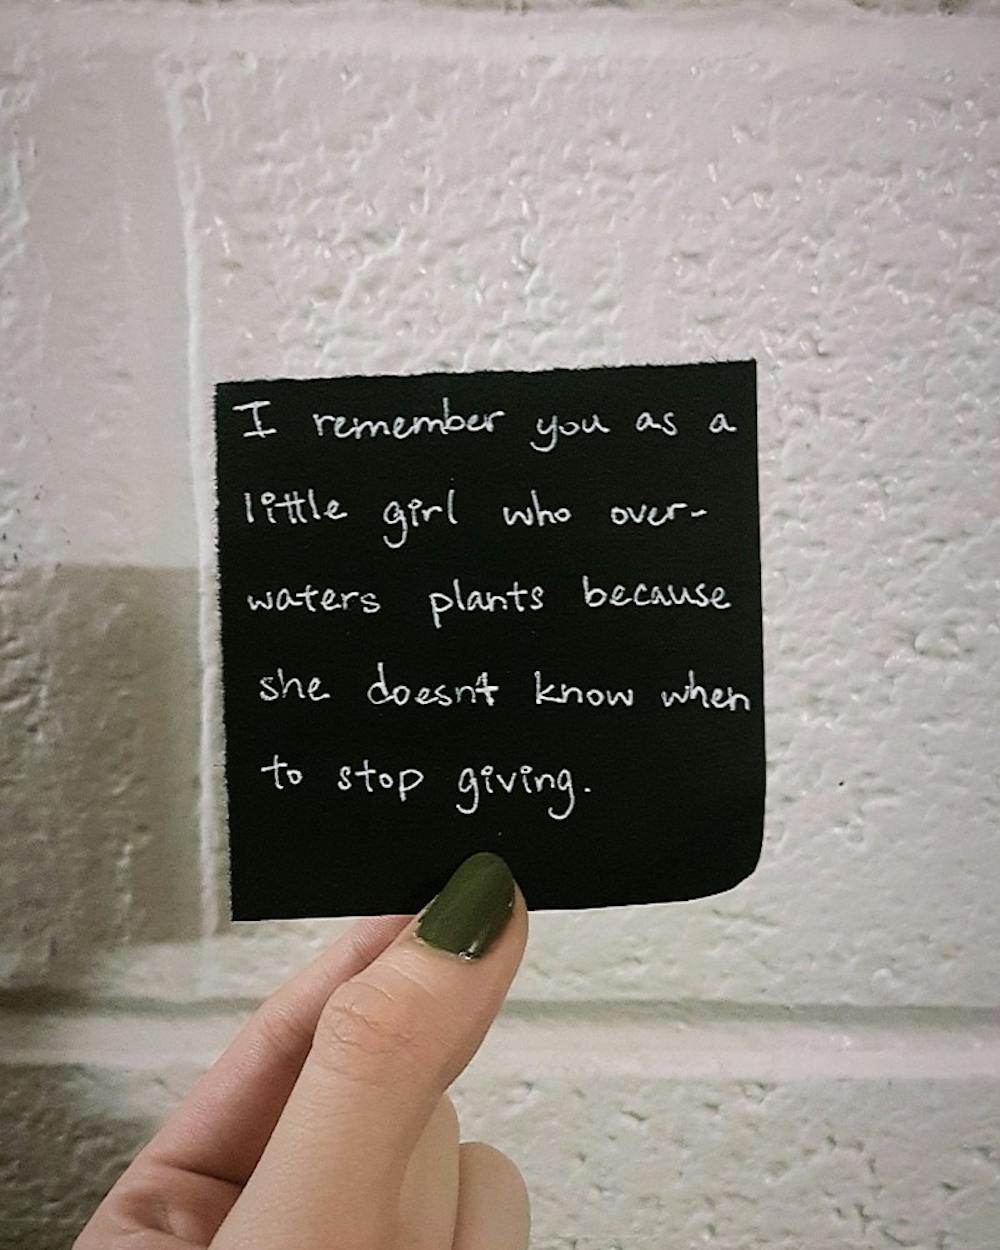 I remember you as a
little girl who over-
waters plants because
she doesn't know when
to stop giving.